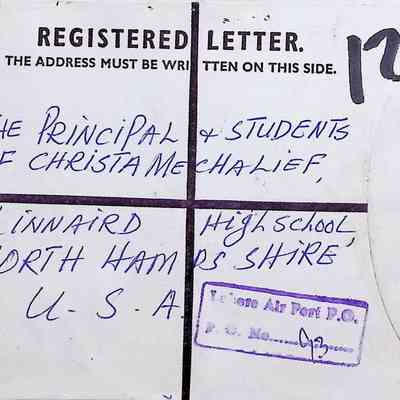 REGISTERED LETTER.
THE ADDRESS MUST BE WRITTEN ON THIS SIDE.
12
HE PRINCIPAL & STUDENTS
F CHRISTA MECHALIEF,
INNAIRD HIGH SCHOOL,
ORTH HAMPS SHIRE
U. S. A.
Lahore Air Port P.O.
P. O. No.....93....